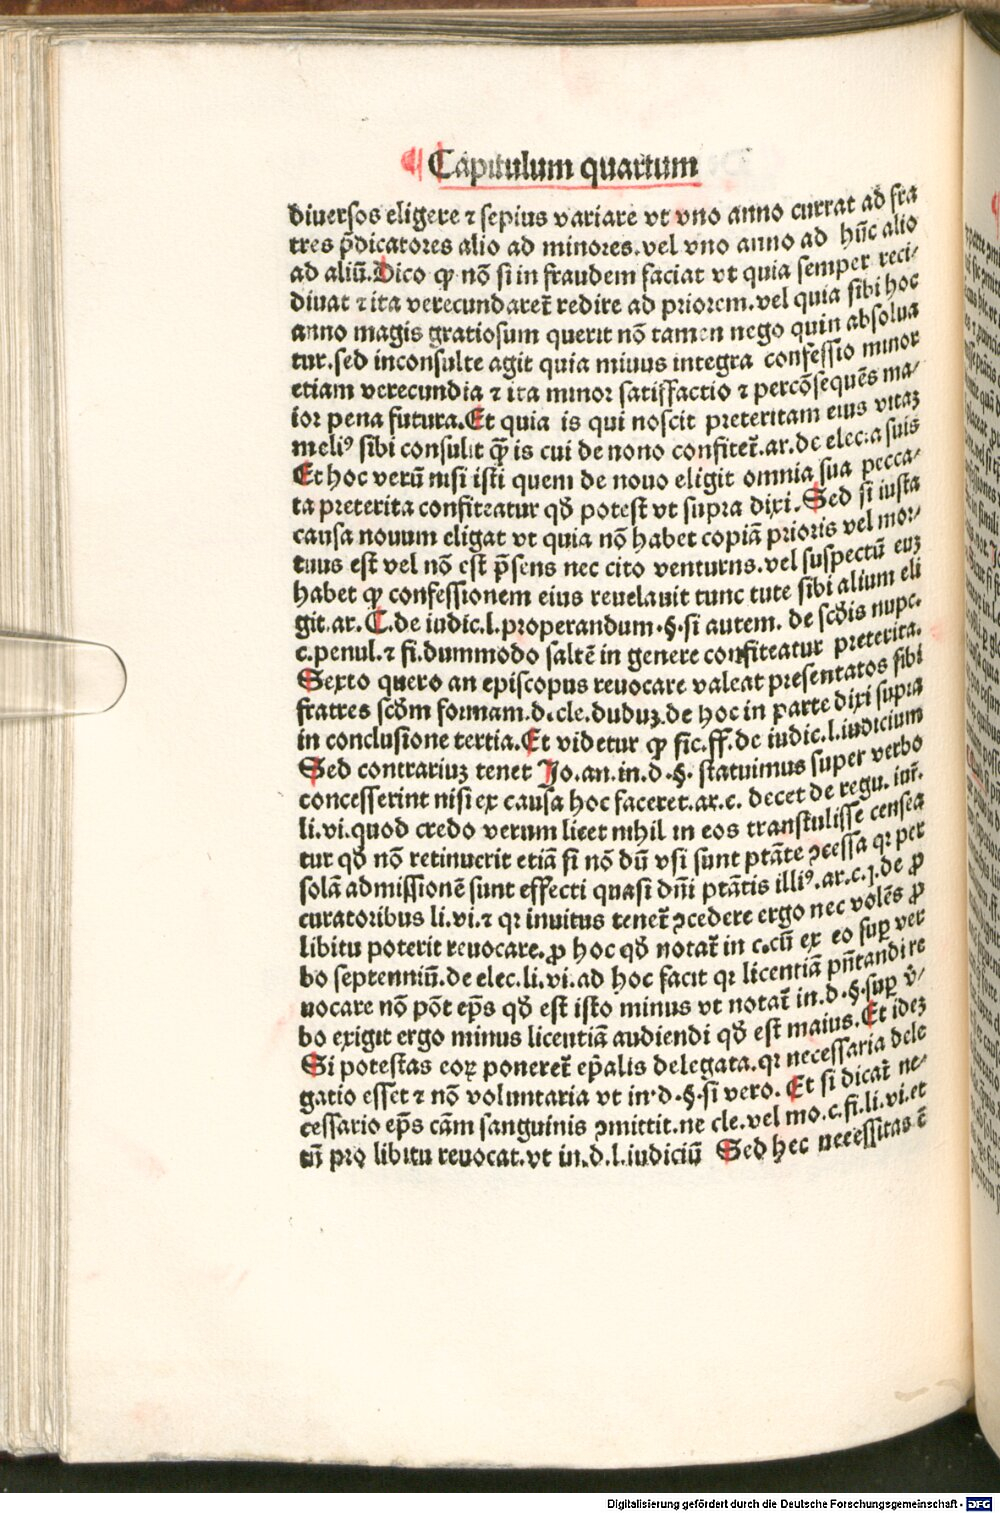 ¶ Capitulum quartum
diuersos eligere ⁊ sepius variare vt vno anno currat ad fra
tres p̄dicatores alio ad minores.vel vno anno ad hūc alio
ad aliū.Dico ꝙ nō si in fraudem faciat vt quia semper reci-
diuat ⁊ ita verecundaret̄ redire ad priorem.vel quia sibi hoc
anno magis gratiosum querit nō tamen nego quin absolua
tur.sed inconsulte agit quia minus integra confessio minor
etiam verecundia ⁊ ita minor satisfactio ⁊ percōsequēs ma-
ior pena futura.Et quia is qui noscit preteritam eius vitaꝫ
meliꝰ sibi consulit ꝙ̄ is cui de nouo confitet̄.ar.de elec.a suis
Et hoc verū nisi isti quem de nouo eligit omnia sua pecca-
ta preterita confiteatur qđ potest vt supra dixi.Sed si iusta
causa nouum eligat vt quia nō habet copiā prioris vel mor-
tuus est vel nō est p̄sens nec cito venturus.vel suspectū euꝫ
habet ꝙ confessionem eius reuelauit tunc tute sibi alium eli
git.ar.C.de iudic.l.properandum.§.si autem. de scđis nupc.
c.penul.⁊ fi.dummodo saltē in genere confiteatur preterita.
Sexto quero an episcopus reuocare valeat presentatos sibi
fratres scđm formam.d.cle.duduꝫ.de hoc in parte dixi supra
in conclusione tertia.Et videtur ꝙ sic.ff.de iudic.l.iudicium
Sed contrariuꝫ tenet Jo.an.in.d.§. statuimus super verbo
concesserint nisi ex causa hoc faceret.ar.c. decet de regu. iur̄.
li.vi.quod credo verum licet nihil in eos transtulisse censea
tur qđ nō retinuerit etiā si nō dū vsi sunt ptāte ꝯcessa qꝛ per
solā admissionē sunt effecti quasi dn̄i ptātis illiꝰ.ar.c.j.de ꝓ
curatoribus li.vi.⁊ qꝛ inuitus tenet̄ ꝯcedere ergo nec volēs ꝓ
libitu poterit reuocare.ꝓ hoc qđ notat̄ in c.cū ex eo suꝑ ver
bo septenniū.de elec.li.vi.ad hoc facit qꝛ licentiā pn̄tandi re
uocare nō pōt ep̄s qđ est isto minus vt notat̄ in.d.§.suꝑ v̄-
bo exiget ergo minus licentiā audiendi qđ est maius.Et ideꝫ
Si potestas eoꝝ poneret̄ ep̄alis delegata.qꝛ necessaria dele
gatio esset ⁊ nō voluntaria vt in.d.§.si vero. Et si dicat̄ ne-
cessario ep̄s cām sanguinis ꝯmittit.ne cle.vel mo.c.fi.li.vi.et
tn̄ pro libitu reuocat.vt in.d.l.iudiciū Sed hec necessitas ē
Digitalisierung gefördert durch die Deutsche Forschungsgemeinschaft - DFG